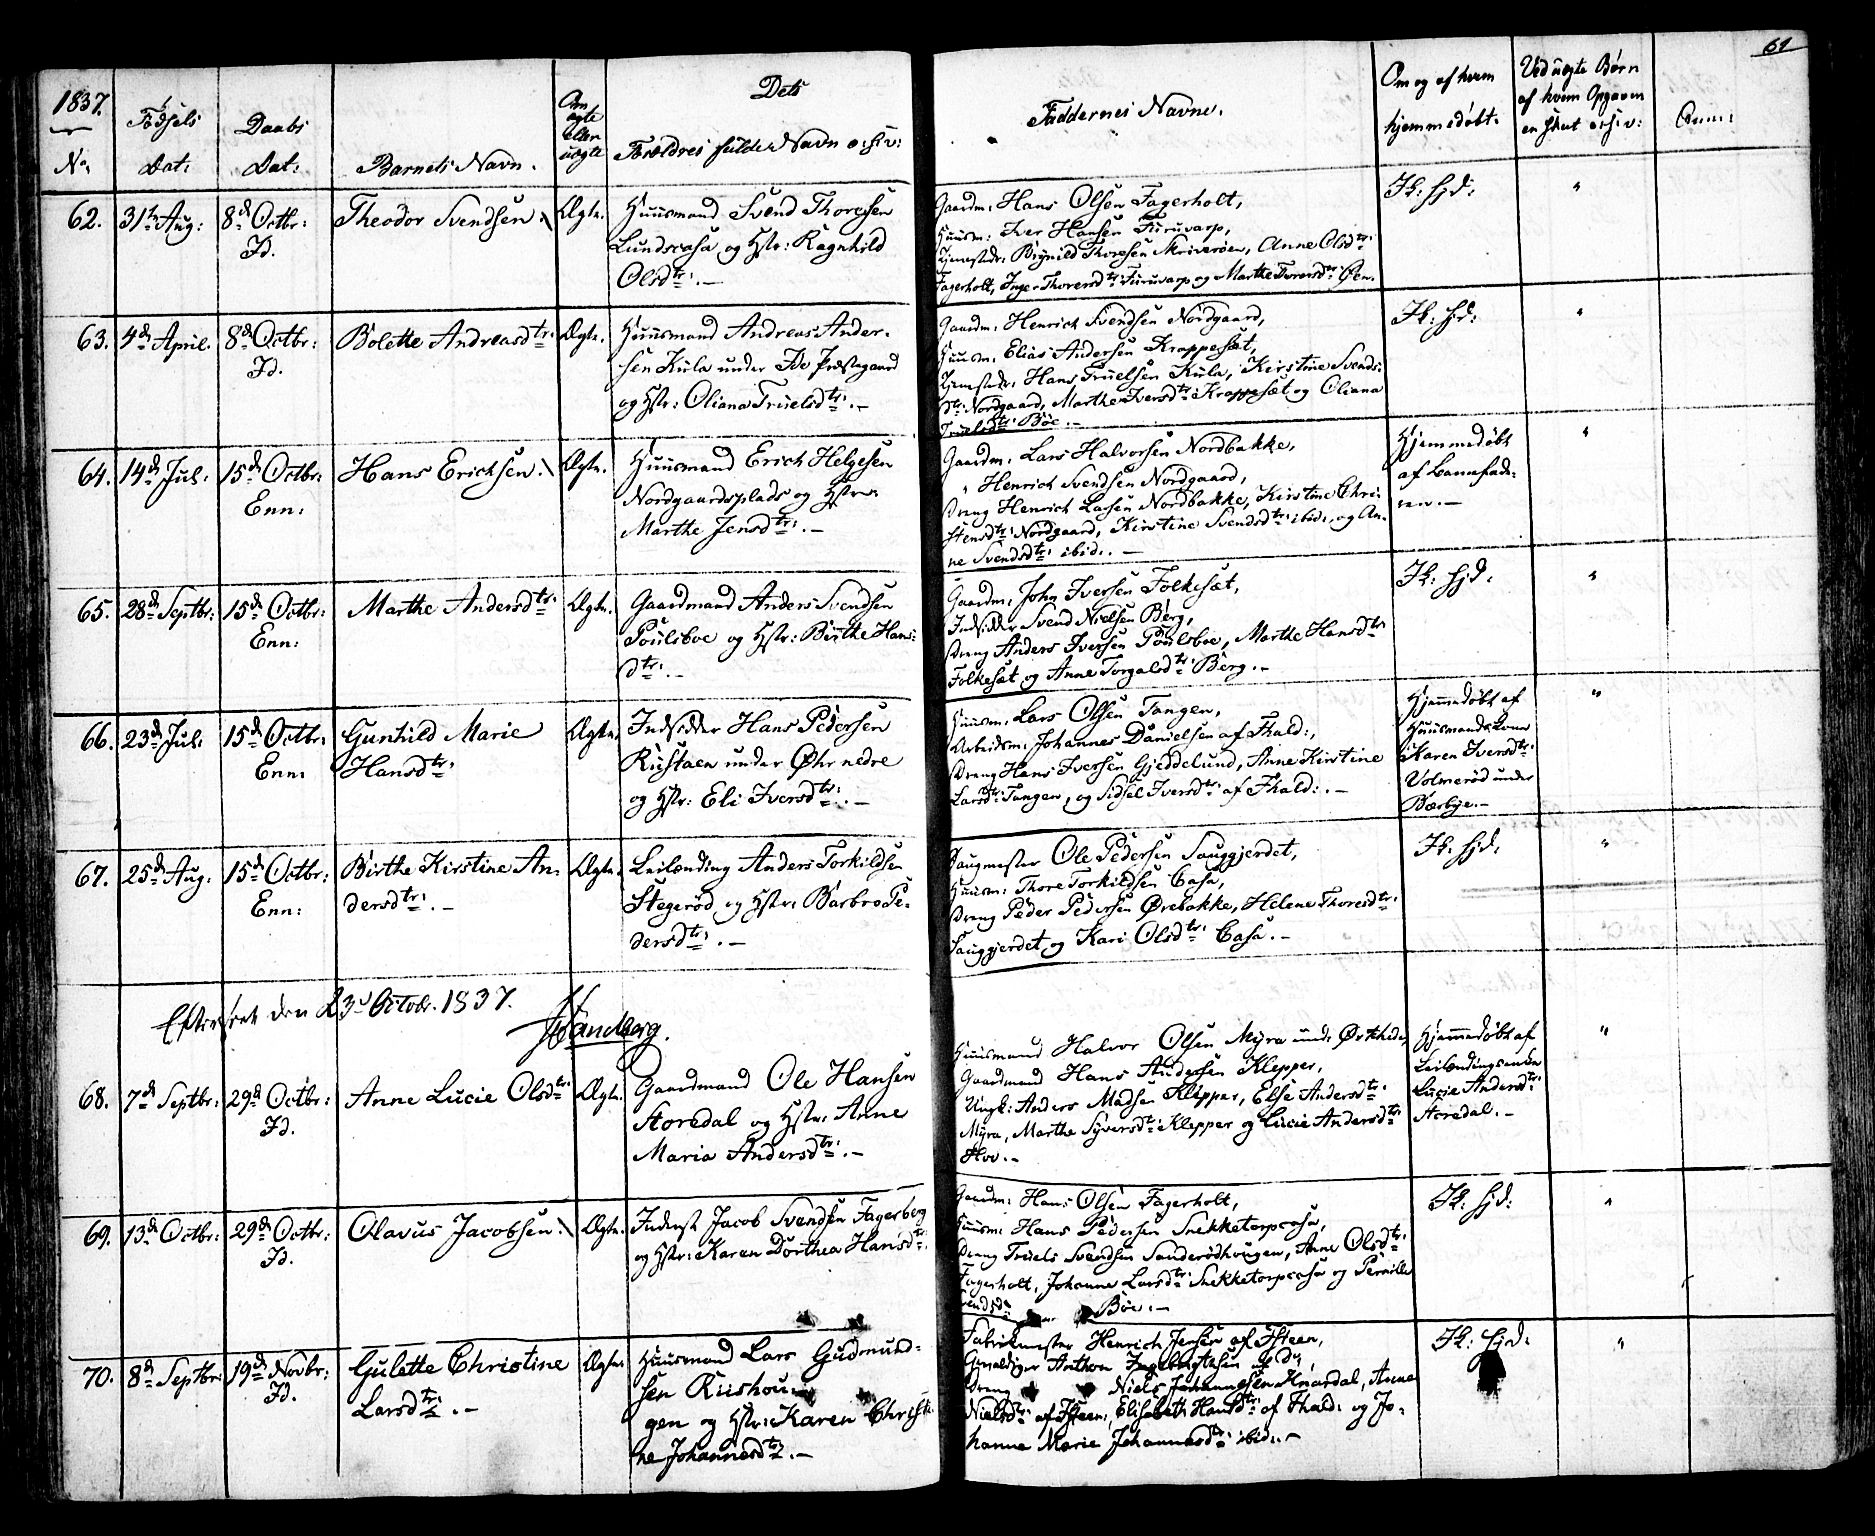 61
1837.
No:
Fødsels
Dat:
Daabs
Dat:
Barnets Navn.
Om
ægte
eller
uægte
Dets
Forældres fulde Navn o: s: v:
Faddernes Navne.
Om og af hvem
hjemmedøbt.
Ved uægte Børn
af hvem Opgaven
en skeet o: s: v:
Anm:
62. 31te Aug: 8de Octbr: Id. Theodor Svendsen. Ægte.
Huusmand Svend Thoresen
Lundscasa og Hstr: Ragnhild
Olsdtr: . —
Gaardm: Hans Olsen Fagerholt,
Huusm: Iver Hansen Furuvarp,
Tjenestedr: Brynild Thoresen Skriverøen, Anne Olsdtr:
Fagerholt, Inger Thorersdtr: Furuvarp og Marthe Torersdtr: Øen.
Ik: hjd:
"
63. 4de April. 8de Octbr: Id. Bolette Andreasdtr: Ægte.
Huusmand Andreas Ander-
sen Kula under Id Præstegaard
og Hstr: Oliana Truelsdtr: . —
Gaardm: Henrich Svendsen Nordgaard,
Huusm: Elias Andersen Krappesæt,
Tjenestedr: Hans Truelsen Kula, Kirstine Svends-
dtr: Nordgaard, Marthe Iversdtr: Krappesæt og Oliana
Truelsdtr: Böe. —
Ik: hjd:
"
64. 14de Jul: 15de Octbr: Enn: Hans Erichsen. Ægte.
Huusmand Erich Helgesen
Nordgaardsplads og Hstr:
Marthe Jensdtr: . —
Gaardm: Lars Halvorsen Nordbakke,
" Henrich Svendsen Nordgaard,
Dreng Henrich Larsen Nordbakke, Kirstine Chri-
stensdtr: Nordgaard, Kirstine Svendsdtr: ibid:, og An-
ne Svendsdtr: ibid: . —
Hjemmedøbt
af Barnefade-
ren. —
"
65. 28de Septbr: 15de Octbr: Enn: Marthe Andersdtr: Ægte.
Gaardmand Anders Svendsen
Poulsboe og Hstr: Birthe Hans-
dtr: . —
Gaardm: John Iversen Folkesæt,
Indsidder Svend Nielsen Berg,
Dreng Anders Iversen Poulsboe, Marthe Hansdtr:
Folkesæt og Anne Torgalsdtr: Berg. —
Ik: hjd:
"
66. 23de Jul: 15de Octbr: Enn: Gunhild Marie
Hansdtr: Ægte.
Indsidder Hans Pedersen
Rustaen under Øhr nedre
og Hstr: Eli Iversdtr: . —
Huusm: Lars Olsen Tangen,
Arbeidsm: Johannes Danielsen af Fhald:,
Dreng Hans Iversen Gjeddelund, Anne Kirstine
Larsdtr: Tangen, og Sidsel Iversdtr: af Fhald: . —
Hjemmedøbt af
Huusmandskone
Karen Iversdtr:
Volmerød under
Bærbye. —
"
67. 25de Aug: 15de Octbr: Enn: Birthe Kirstine An-
dersdtr: . — Ægte.
Leilænding Anders Torkildsen
Stegerød og Hstr: Barbro Pe-
dersdtr: . —
Saugmester Ole Pedersen Sauggjerdet,
Huusm: Thore Torkildsen Casa,
Dreng Peder Pedersen Ørebakke, Helene Thoresdtr:
Sauggjerdet, og Kari Olsdtr: Casa. —
Ik: hjd:
"
Efterseet den 23d Octobr. 1837.
68. 7de Septbr: 29de Octbr: Id. Anne Lucie Olsdtr: Ægte.
Gaardmand Ole Hansen
Aoredal og Hstr: Anne
Maria Andersdtr: . —
Huusmand Halvor Olsen Myra und: Ørkhede,
Gaardmand Hans Andersen Klepper,
Ungk: Anders Madsen Klepper, Else Andersdtr:
Myra, Marthe Syversdtr: Klepper og Lucie Andersdtr:
Hov. —
Hjemmedøbt af
Leilændingsenke
Lucie Andersdtr:
Aoredal. —
"
69. 13de Octbr: 29de Octbr: Id. Olavus Jacobsen. Ægte.
Inderst Jacob Svendsen Fagerberg
og Hstr: Karen Dorthea Hansdtr:
Gaardm: Hans Olsen Fagerholt,
Huusm: Hans Pedersen Snekketorpcasa,
Dreng Truels Svendsen Sanderødhougen, Anne Olsdtr:
Fagerholt, Johanne Larsdtr: Snekketorpcasa og Pernille
Svendsdtr: Böe. —
Ik: hjd:
"
70. 8de Septbr: 19de Novbr: Id. Gulette Christine
Larsdtr: . — Ægte.
Huusmand Lars Gudmund-
sen Riishou-
gen og Hstr: Karen Christi-
ne Johannesdtr: . —
Fabrikmester Henrich Jensen af Fsteen,
Gevaldiger Anthon Ingebrigtsen af do,
Dreng Niels Johannesen Knardal, Anne
Nielsdtr: af Fsteen, Elisabeth Hansdtr: af Fhald: og Jo-
hanne Marie Johannesdtr: ibid: . —
Ik: hjd:
"